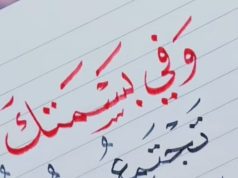 وَفي بَسْمَتكَ
تَجْتَمعُ